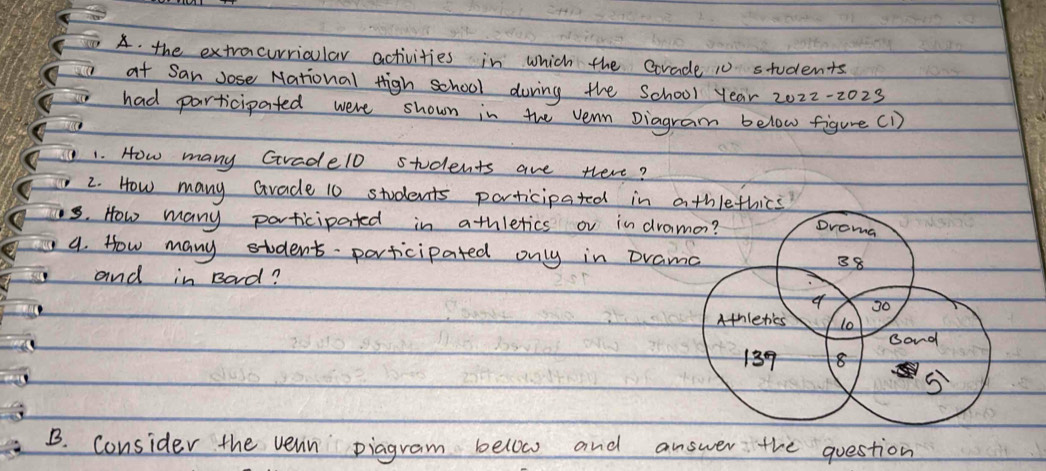 A. the extracurricular activities in which the Grade 10 students
at San Jose National High School during the School Year 2022-2023
had participated were shown in the venn Diagram below figure (1)
1. How many Grade 10 students are there?
2. How many Grade 10 students participated in athlethics?
3. How many participated in athletics or in drama?
4. How many students participated only in Drama
and in Band?
Drama
38
9 30
Athletics 10
Band
139 8
51
B. Consider the venn Diagram below and answer the question